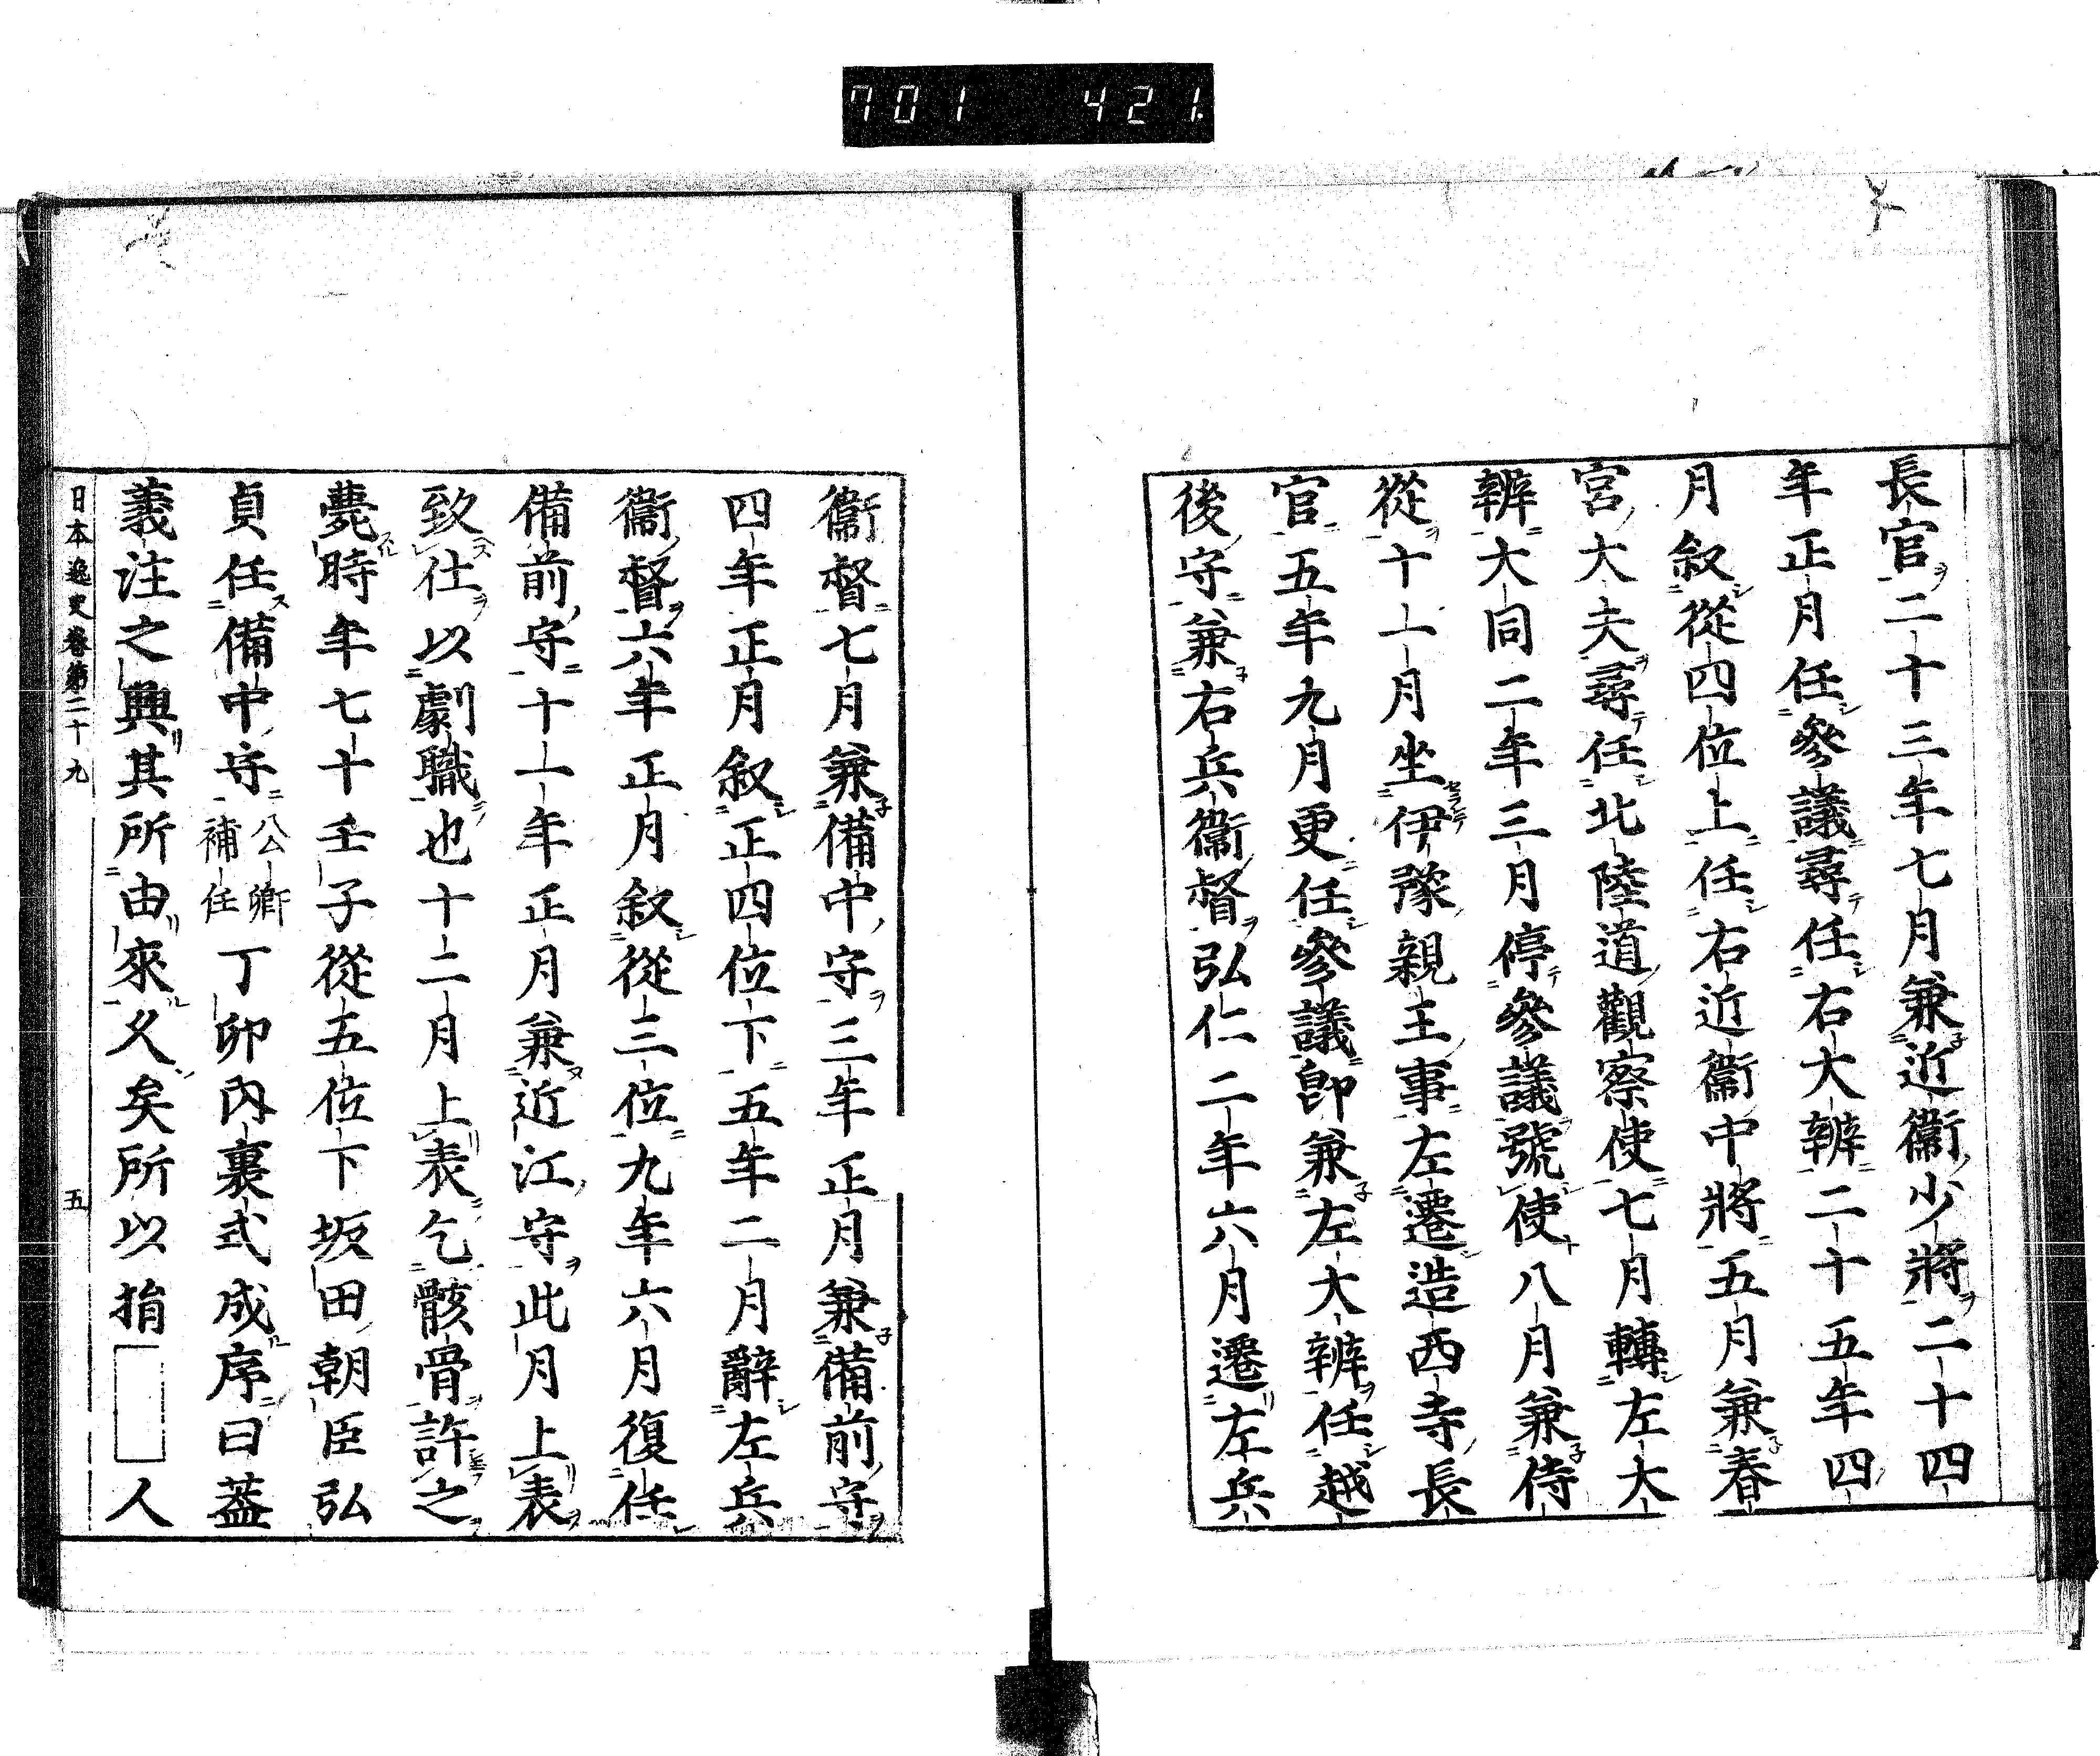 701 421
長官二十三年七月兼近衞少將二十四
年正月任參議尋任右大辨二十五年四
月叙從四位上任右近衞中將五月兼春
宮大夫尋任北陸道觀察使七月轉左大
辨大同二年三月停參議號使八月兼侍
從十一月坐伊豫親王事左遷造西寺長
官五年九月更任參議卽兼左大辨任越
後守兼右兵衞督弘仁二年六月遷左兵
衞督七月兼備中守三年正月兼備前守
四年正月叙正四位下五年二月辭左兵
衞督六年正月叙從三位九年六月復任
備前守十一年正月兼近江守此月上表
致仕以劇職也十二月上表乞骸骨許之
薨時年七十壬子從五位下坂田朝臣弘
貞任備中守公卿補任丁卯內裏式成序曰蓋
義注之興其所由來久矣所以指人
日本逸史卷第二十九 五